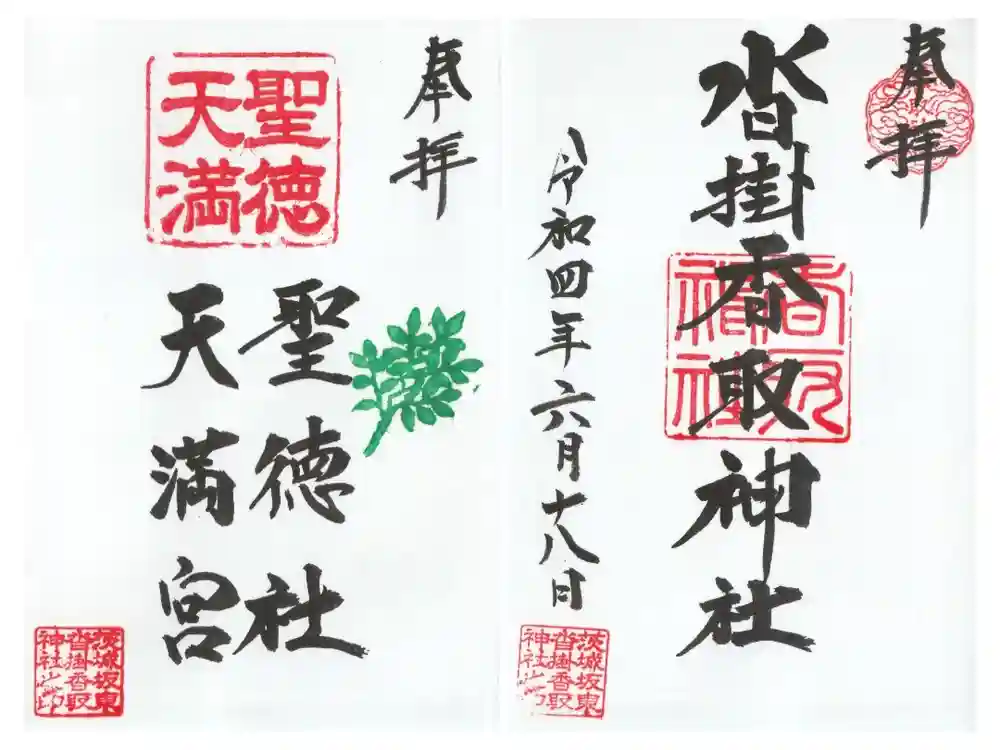 奉拝
沓掛香取神社
令和四年六月十八日
茨城坂東
沓掛香取
神社之印
奉拝
聖徳社
天満宮
聖徳
天満
茨城坂東
沓掛香取
神社之印